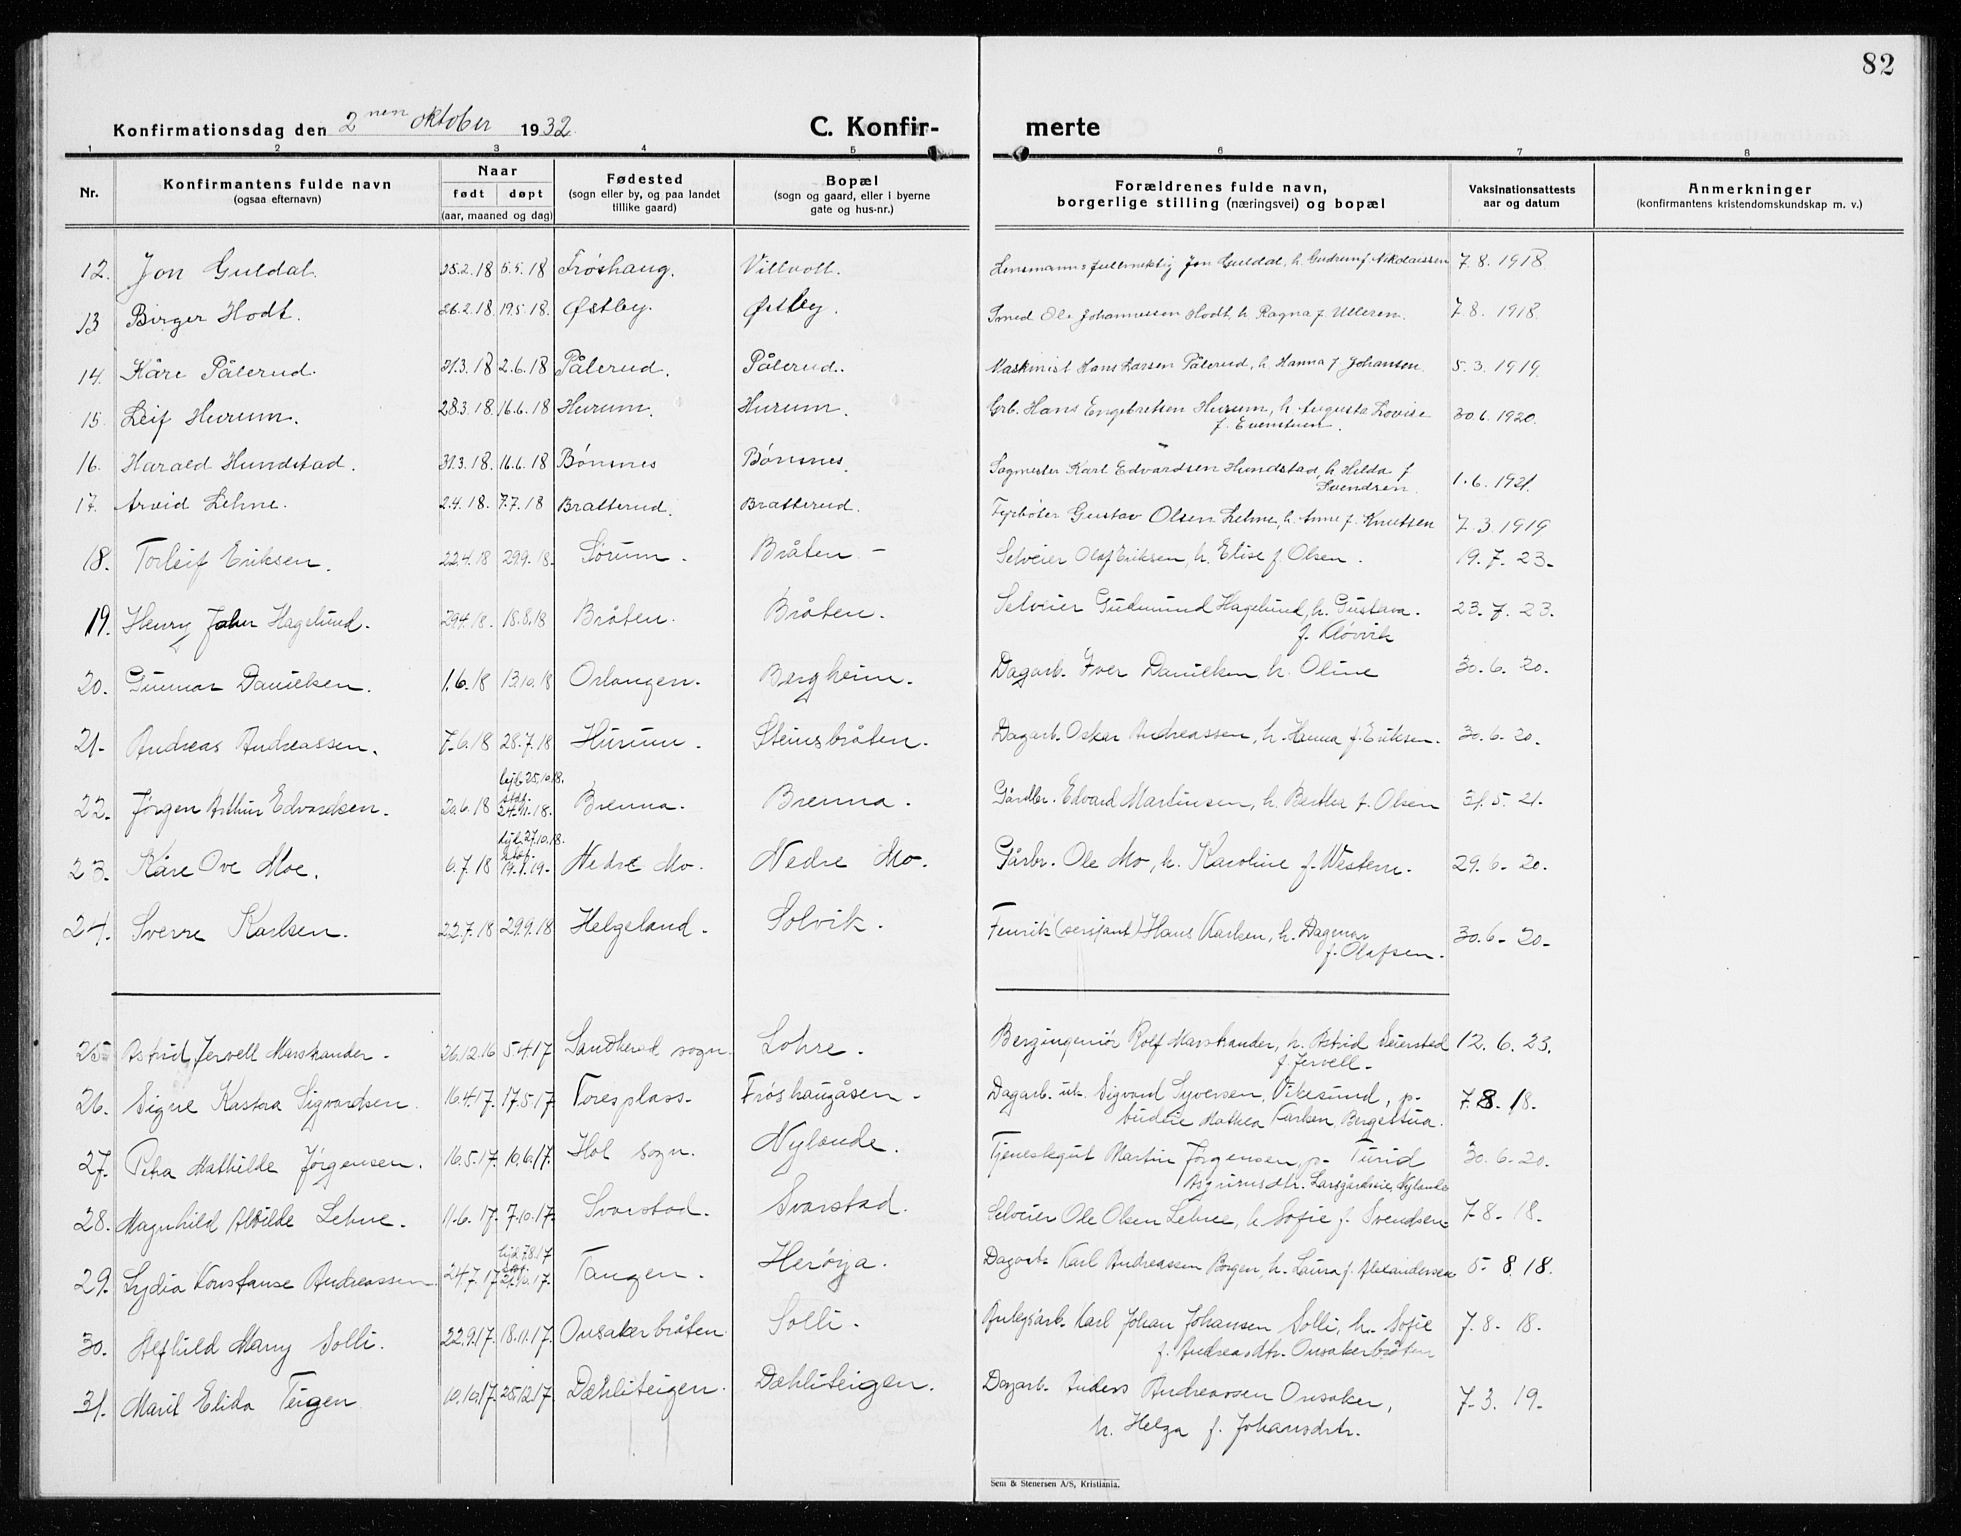 82
Konfirmationsdag den 2nen oktober 1932 C. Konfir- merte
1 2 3 4 5 6 7 8
Nr. Konfirmantens fulde navn (ogsaa efternavn) Naar født døpt (aar, maaned og dag) Fødested (sogn eller by, og paa landet tillike gaard) Bopæl (sogn og gaard, eller i byerne gate og hus-nr.) Forældrenes fulde navn, borgerlige stilling (næringsvei) og bopæl Vaksinationsattests aar og datum Anmerkninger (konfirmantens kristendomskundskap m. v.)
12. Jon Guldal. 25.2.18 5.5.18 Frøshaug. Villvoll. Lensmannsfullmektig Jon Guldal, h. Gudrun f. Nikolaissen 7.8.1918
13 Birger Hodt. 26.2.18. 19.5.18. Østby. Østby. Smed Ole Johannessen Hodt, h. Ragna f. Ulleren. 7.8.1918.
14. Kåre Pålerud. 21.3.18 2.6.18 Pålerud. Pålerud. Maskinist Hans Larsen Pålerud, h. Hanna f. Johansen. 5.3.1919.
15. Leif Hurum. 28.3.18. 16.6.18 Hurum. Hurum. Grb. Hans Engebretsen Hurum, h. Augusta Lovise 30.6.1920.
f. Evenstuen.
16. Harald Hundstad. 31.3.18. 16.6.18 Bønsnes Bønsnes. Sagmester Karl Edvardsen Hundstad, h. Hilda f
Svendsen. 1.6.1921.
17. Arvid Lehne. 2.4.18. 7.7.18 Bratterud. Bratterud. Fyrbøter Gustav Olsen Lehne, h. Anne f. Knutsen 7.3.1919
18. Torleif Eriksen. 22.4.18 29.9.18. Sørum. Bråten - Selveier Olaf Eriksen, h. Elise f. Olsen. 19.7.23-
19. Henry John Hagelund. 29.4.18. 18.8.18 Bråten. Bråten. Selveier Gudmund Hagelund, h. Gustava. 23.7.23.
f. Kløvvik
20. Gunnar Danielsen. 1.6.18 13.10.18 Orlangen. Bergheim. Dagarb. Iver Danielsen h. Oline 30.6.20.
21- Andreas Andreassen. 7.6.18 28.7.18 Hurum. Steinsbråten. Dagarb. Oskar Andreassen, h. Hanna f. Eriksen. 30.6-20.
hjd. 25.10.18.
22. Jørgen Arthur Edvardsen. 20.6.18 24.11.18. Brenna. Brenna. Gårdbr. Edvard Martinsen, h. Berthe f. Olsen 31.5.21.
hjd. 27.10.18.
23. Kåre Ove Moe. 6.7.18 19.1.19- Nedre Mo. Nedre Mo. Gårbr. Ole Mo, h. Karoline f. Western. 29.6-20.
24. Sverre Karlsen. 22.7.18 29.9.18 Helgeland. Solvik. Fenrik (serjant) Hans Karlsen, h. Dagmar 30.6-20-
f. Olafsen.
25 Astrid Jervell Marstrander. 26.12.16 5.4.17 Sandherad sogn. Lohre. Bergingeniør Rolf Marstrander, h. Astrid Seierstad 12.6.23.
f. Jervell.
26. Signe Kastora Sigvardsen. 16.4.17. 17.5.17. Toresplass. Frøshaugåsen - Dagarb. uk. Sigvard Syversen, Vikesund, p-
budeie Mathea Karlsen, Bergestua. 7.8.18.
27. Petra Mathilde Jørgensen. 16.5.17. 10.6.17. Hol sogn. Nylande. Tjenestegut Martin Jørgensen, p- Turid 30.6-20.
Asgrimsdtr. Larsgårdseie, Nylande
28. Magnhild Alvilde Lehne. 11.6.17. 7.10.17. Svarstad. Svarstad. Selveier Ole Olsen Lehne, h. Sofie f. Svendsen. 7-8-18.
hjd. 7.8.17
29. Lydia Konstanse Andreassen. 24.7.17 21.10.17. Tangen. Herøya. Dagarb. Karl Andreassen Borgen, h. Laura f. Alexandersen 5-8.18.
30. Alfhild Mary Solli. 22.9.17. 18.11.17. Onsakerbråten. Solli. Anlegsarb. Karl Johan Johansen Solli, h. Sofie 7.8-18.
f. Andreasdtr. Onsakerbråten
31. Marit Elida Teigen 10.10.17 25.12.17. Dæhliteigen. Dæhliteigen. Dagarb. Anders Andreassen Onsaker, 7-3.19-
h. Helga f. Johansdtr.
Sem & Stenersen A/S, Kristiania.